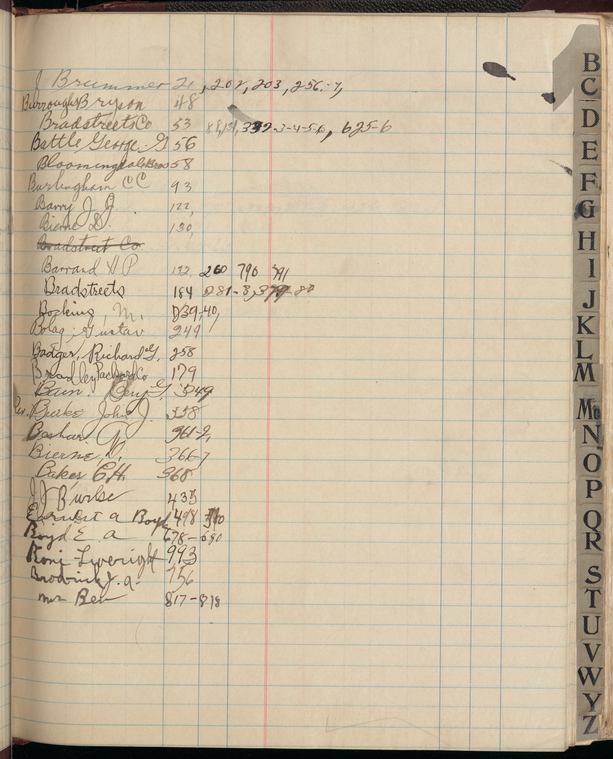 J Brummer 21, 202, 203, 256-7,
Burroughs Bryson 48
Bradstreets Co 53 625-6
Battle George G 56
Bloomingdale Bros 58
Burlingham CC 93
Barry J. J. 122,
Bierne D. 130,
Bradstreet Co.
Barnard H P 132 260 790 791
Bradstreets 184
Bocking, M. 239-40,
Bolag Gustav 249
Badger, Richard G. 258
Bradley Packard Co 179
Bain. Benj G. 349
Rev. Burke John J. 358
361-2,
Bierne, D. 366-7
Baker C.H. 368
J J Burke 435
Earnest a Boyd 498
Boyd E a 678-690
Boni-Liveright 993
Brodrick J. a. 756
Mrs Ben 817-818
B
C
D
E
F
G
H
I
J
K
L
M
Mc
N
O
P
Q
R
S
T
U
V
W
Y
Z